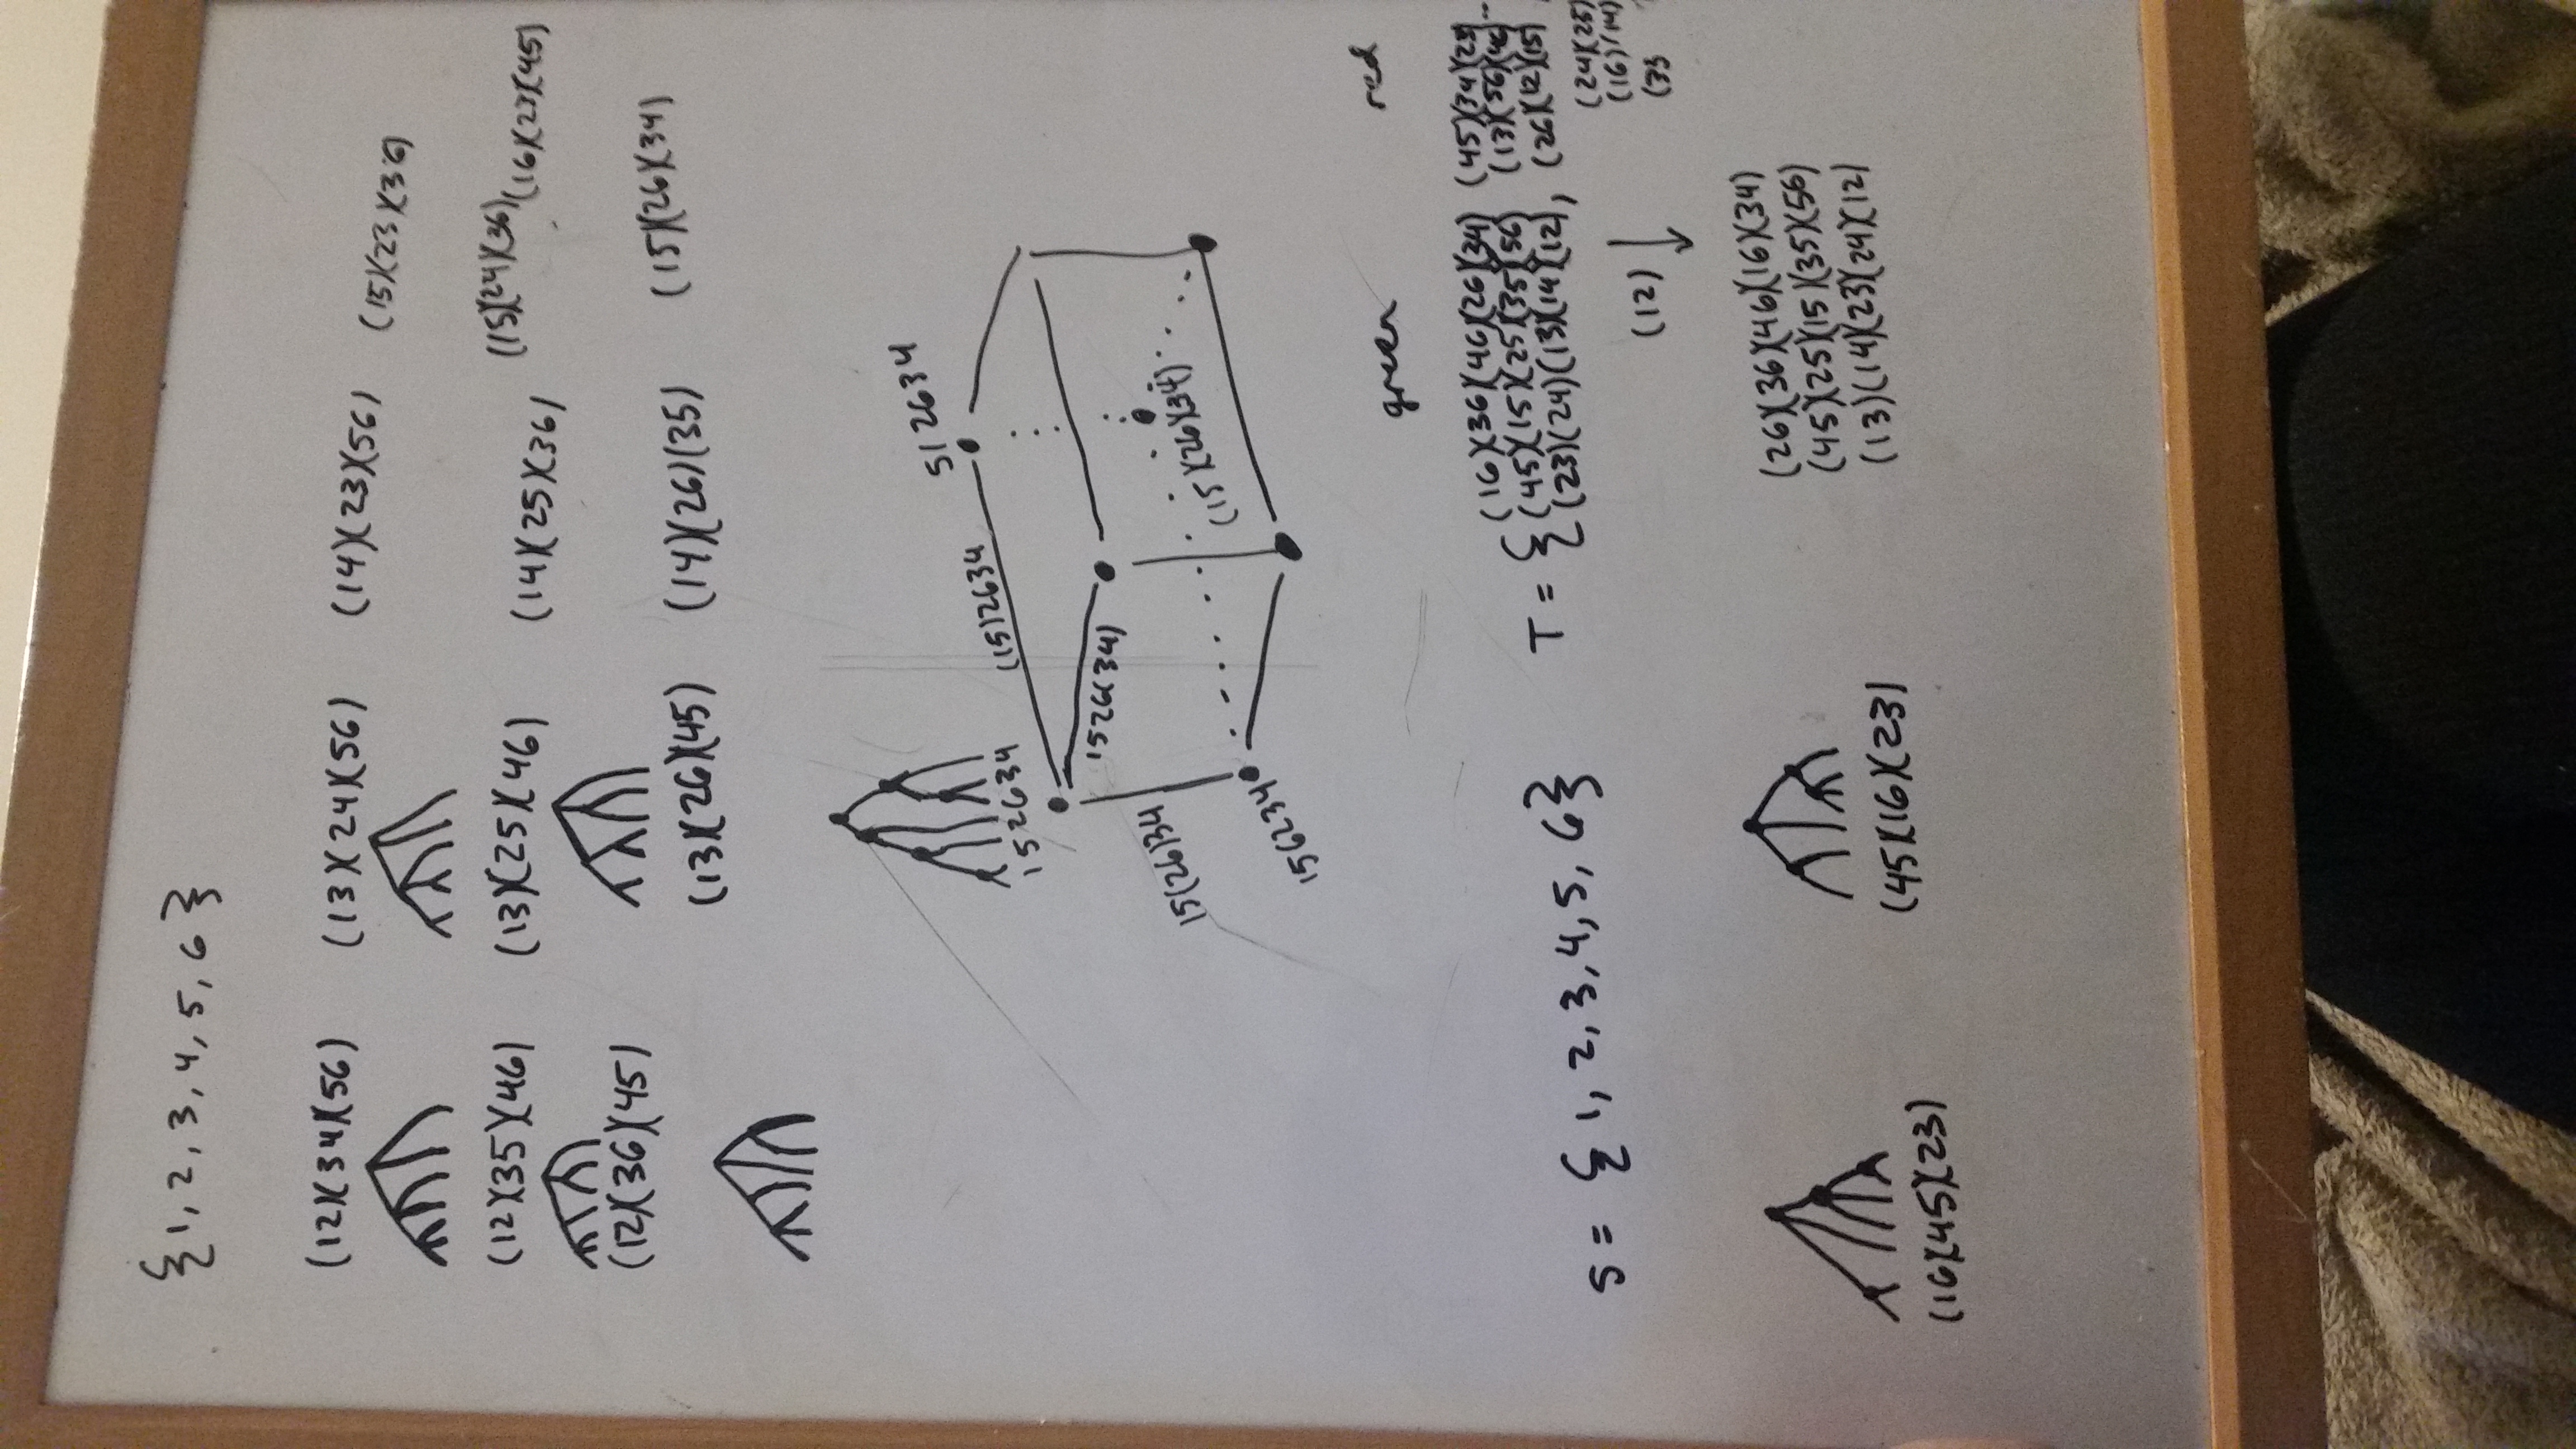 {1, 2, 3, 4, 5, 6}
(12)(34)(56) (13)(24)(56) (14)(23)(56) (15)(23)(36)
(12)(35)(46) (13)(25)(46) (14)(25)(36) (15)(24)(36) (16)(23)(45)
(12)(36)(45) (13)(26)(45) (14)(26)(35) (15)(26)(34)
152634
512634
(15)2634
1526(34)
15(26)34
(15)(26)(34)
156234
green red
(16)(36)(46)(26)(34) (45)(34)(23)
T = { (45)(15)(25)(35)(56) (13)(56)(46) ...
(23)(24)(13)(14)(12), (26)(12)(15)
(24)(25)
(16)(14)
S = {1, 2, 3, 4, 5, 6}
(12) ↓
(26)(36)(46)(16)(34)
(45)(25)(15)(35)(56)
(13)(14)(23)(24)(12)
(16)(45)(23) (45)(16)(23)